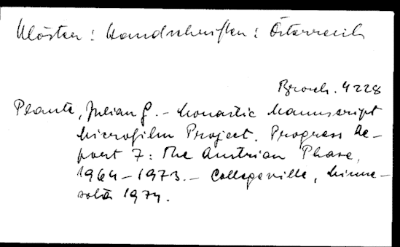 Klöster: Handschriften: Österreich
Brosch. 4228
Plante, Julian G. – Monastic Manuscript
Microfilm Project. Progress Re-
port 7: The Austrian Phase,
1964–1973. – Collegeville, Minne-
sota 1974.